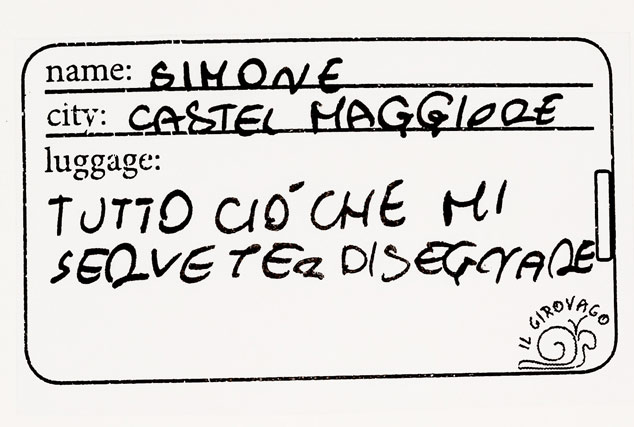 name: SIMONE
city: CASTEL MAGGIORE
luggage:
TUTTO CIÓ CHE MI
SERVE PER DISEGNARE
IL GIROVAGO